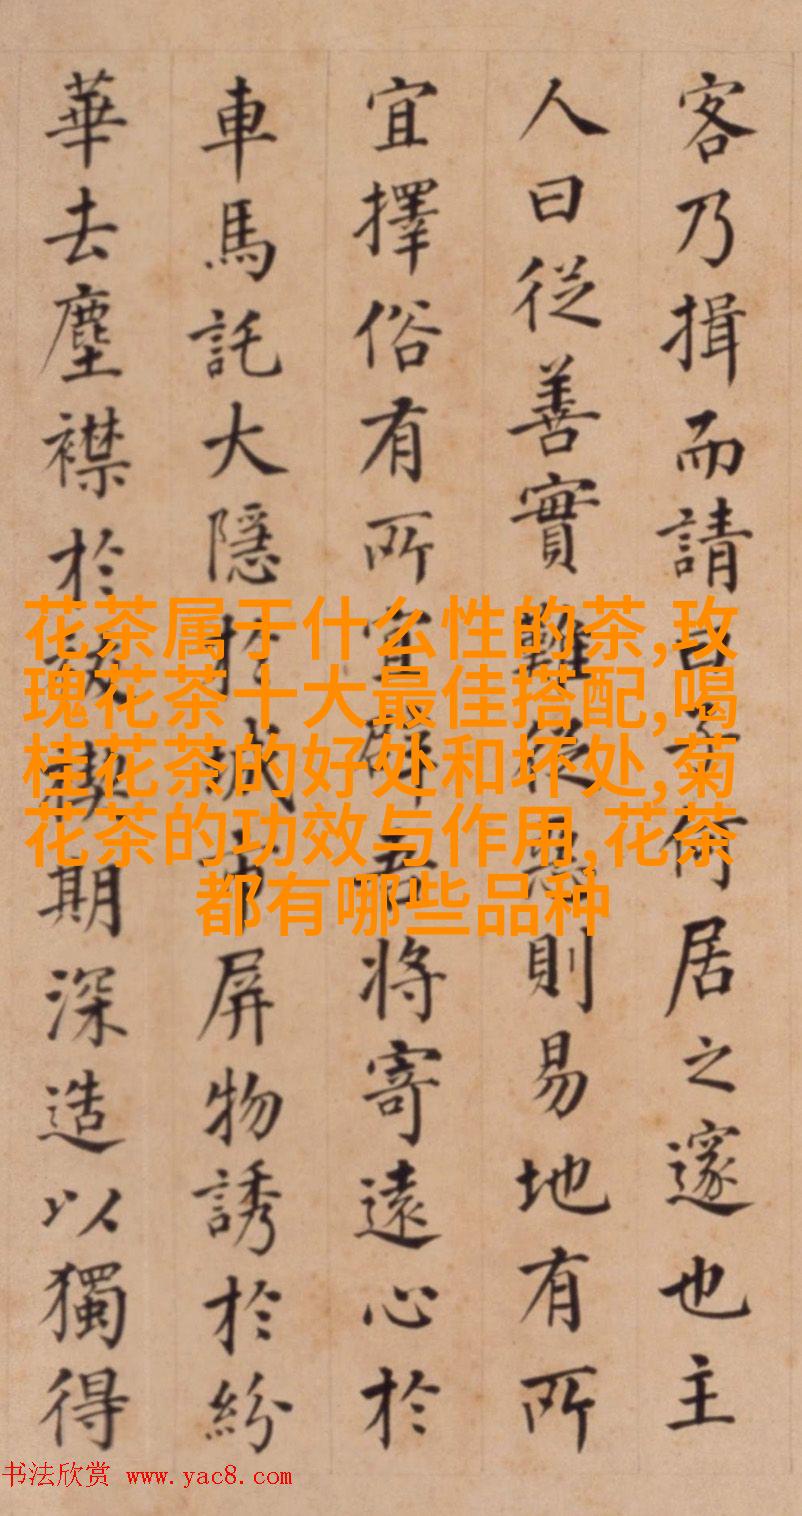 客乃揖而請曰何居之邃也主
人曰從善實難從惡則易地有所
宜擇俗有所宜將寄遠心於
車馬託大隱於城市屏物誘於紛
華去塵襟於期深造以獨得
花茶属于什么性的茶,玫
瑰花茶十大最佳搭配,喝
桂花茶的好处和坏处,菊
花茶的功效与作用,花茶
都有哪些品种
书法欣赏 www.yac8.com